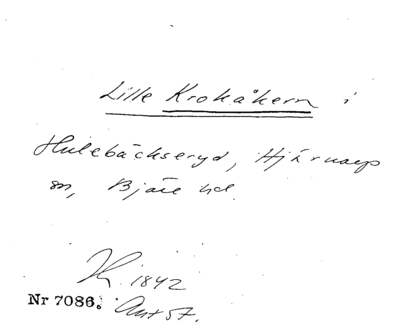 Lille Krokåkern i
Hulebäckseryd, Hjärnarps
sn, Bjäre hd.
1842
Nr 7086. Ant 57.